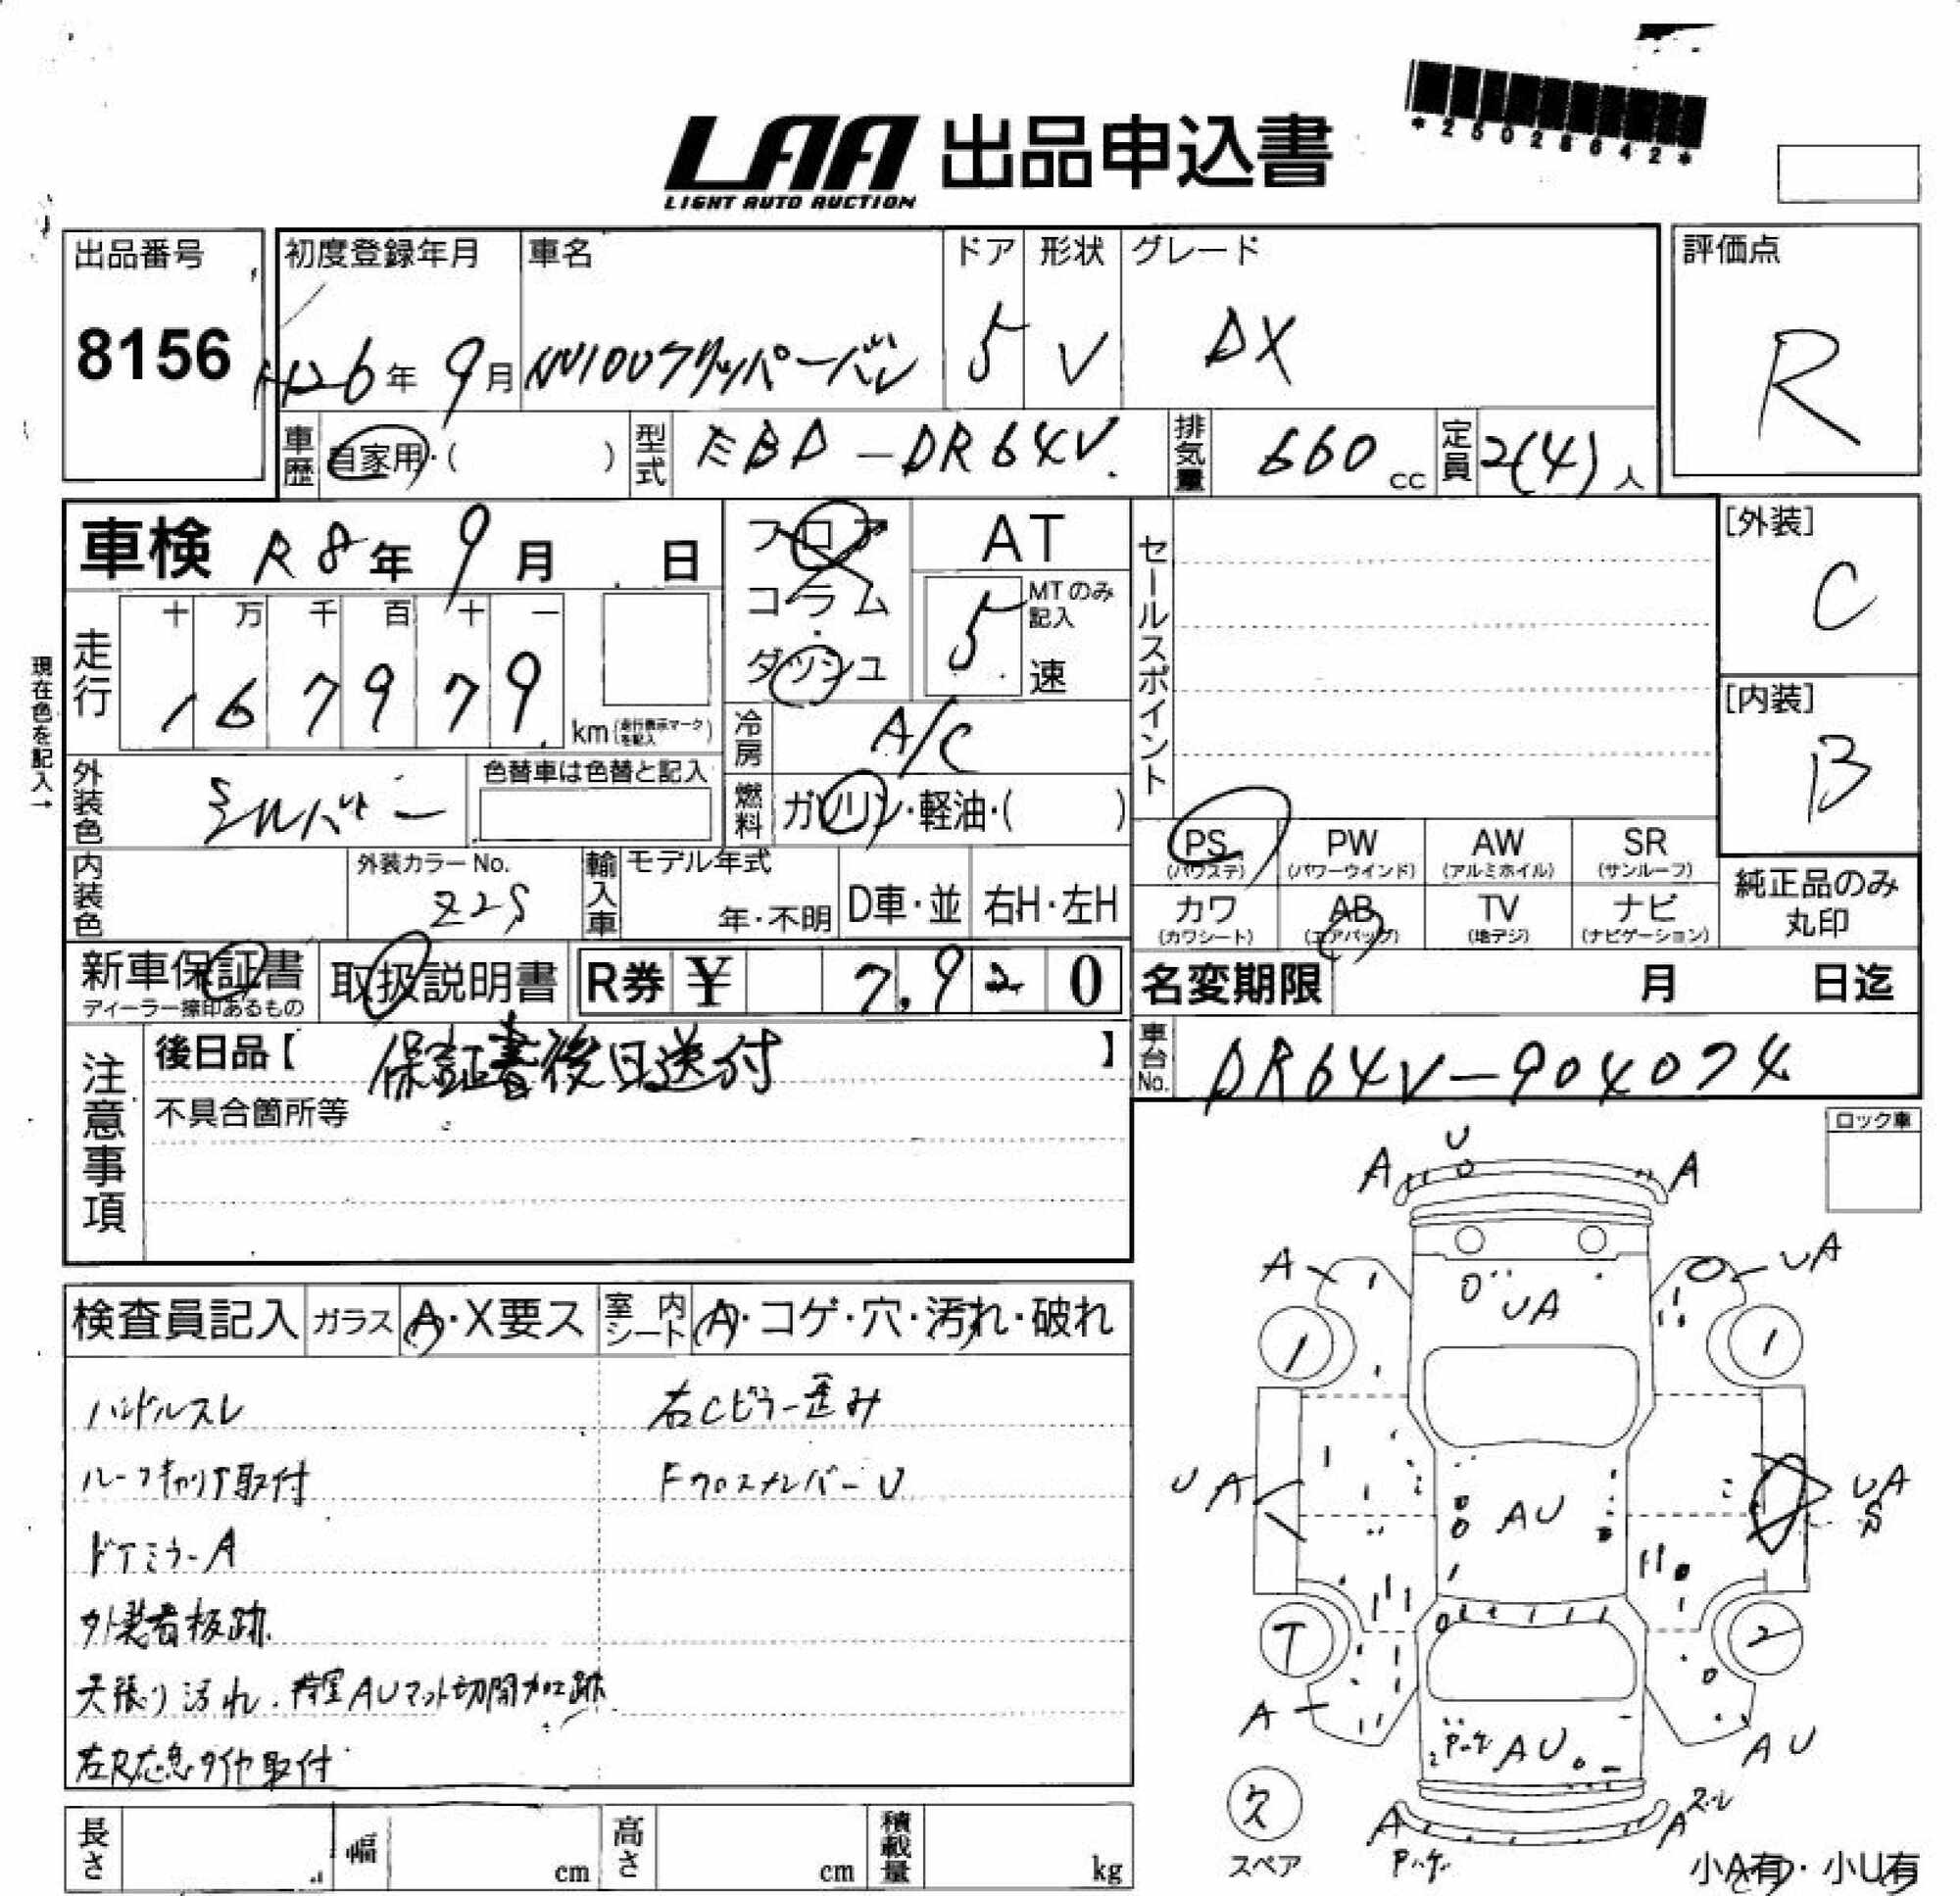 *25028642*
LAA 出品申込書
LIGHT AUTO AUCTION
出品番号
8156
初度登録年月
H26年9月
車名
NV100クリッパーバン
ドア
5
形状
V
グレード
DX
評価点
R
車歴
自家用・( )
型式
EBD-DR64V
排気量
660cc
定員
2(4)人
車検 R8年9月 日
フロア
コラム
ダッシュ
AT
5速
MTのみ記入
セールスポイント
[外装]
C
[内装]
B
現在色を記入→
走行
十万千百十一
167979
km(走行表示マークを記入)
冷房
A/C
外装色
シルバー
色替車は色替と記入
燃料
ガソリン・軽油・( )
PS
(パワステ)
PW
(パワーウインド)
AW
(アルミホイル)
SR
(サンルーフ)
内装色
外装カラーNo.
Z2S
輸入車
モデル年式
年・不明
D車・並
右H・左H
カワ
(カワシート)
AB
(エアバッグ)
TV
(地デジ)
ナビ
(ナビゲーション)
純正品のみ
丸印
新車保証書
ディーラー捺印あるもの
取扱説明書
R券 ¥ 7,920
名変期限 月 日迄
注意事項
後日品【 保証書後日送付 】
不具合箇所等
車台No.
DR64V-904074
ロック車
検査員記入
ガラス
A・X要ス
室内シート
A・コゲ・穴・汚れ・破れ
ハンドルスレ
右Cピラー歪み
ルーフキャリア取付
FクロスメンバーU
ドアミラーA
外装看板跡
天張り汚れ.荷室AUマット切開加工跡
左R応急タイヤ取付
U
A
A
A
UA
UA
1
1
UA
AU
UA
S
T
2
A
P.ケ
AU
AU
久
スペア
A
P.ケ
A
スレ
小A有・小U有
長さ
幅
cm
高さ
cm
積載量
kg